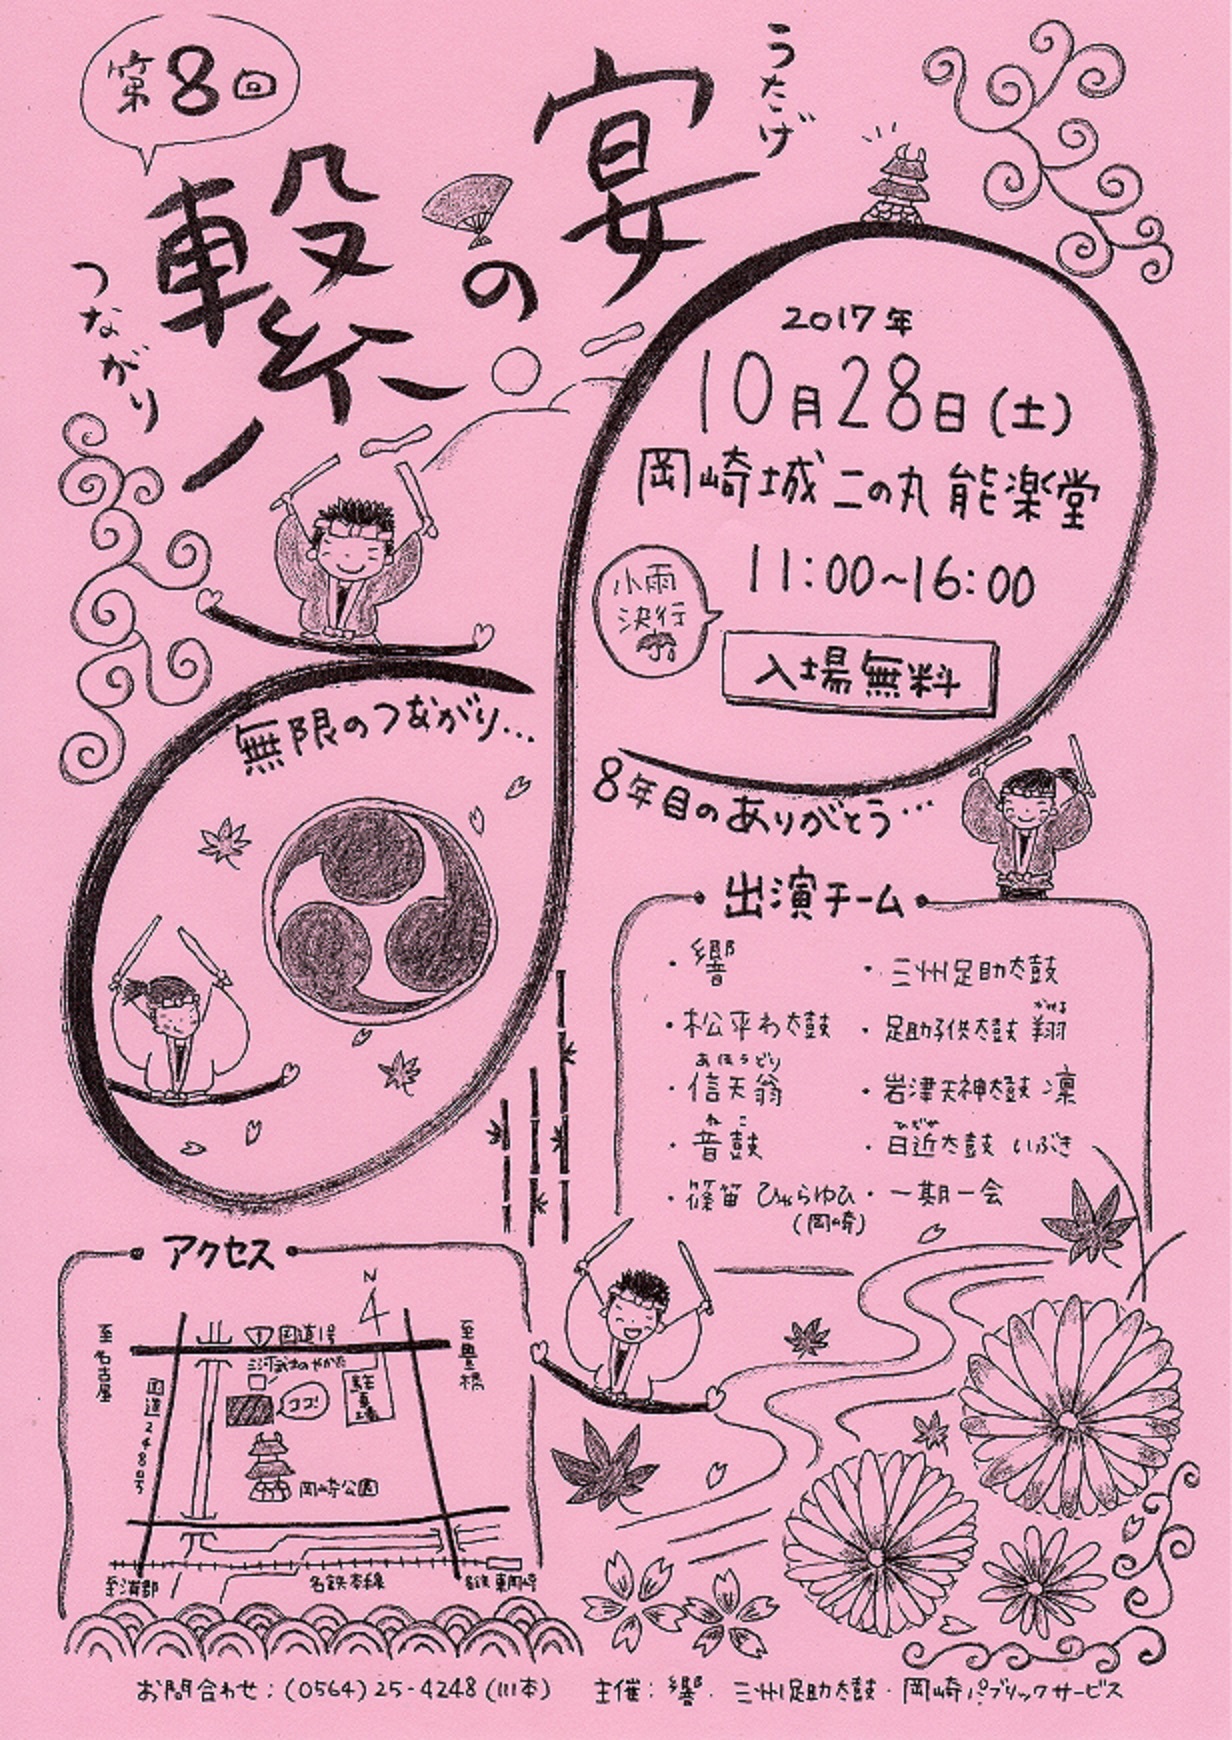 第8回
繋の宴
つながり
うたげ
2017年
10月28日(土)
岡崎城 二の丸 能楽堂
11:00~16:00
小雨
決行
入場無料
無限のつながり…
8年目のありがとう…
出演チーム
・響
・松平わ太鼓
あほうどり
・信天翁
ねこ
・音鼓
・篠笛 ひゅらゆひ
(岡崎)
・三州足助太鼓
かける
・足助子供太鼓 翔
・岩津天神太鼓 凛
ひぢか
・日近太鼓 いぶき
・一期一会
アクセス
N
至名古屋
1 国道1号
至豊橋
三河武士のやかた
国道248号
ココ!
駐車場
岡崎公園
至蒲郡
名鉄本線
名鉄 東岡崎
お問合わせ:(0564)25-4248(川本) 主催:響・三州足助太鼓・岡崎パブリックサービス